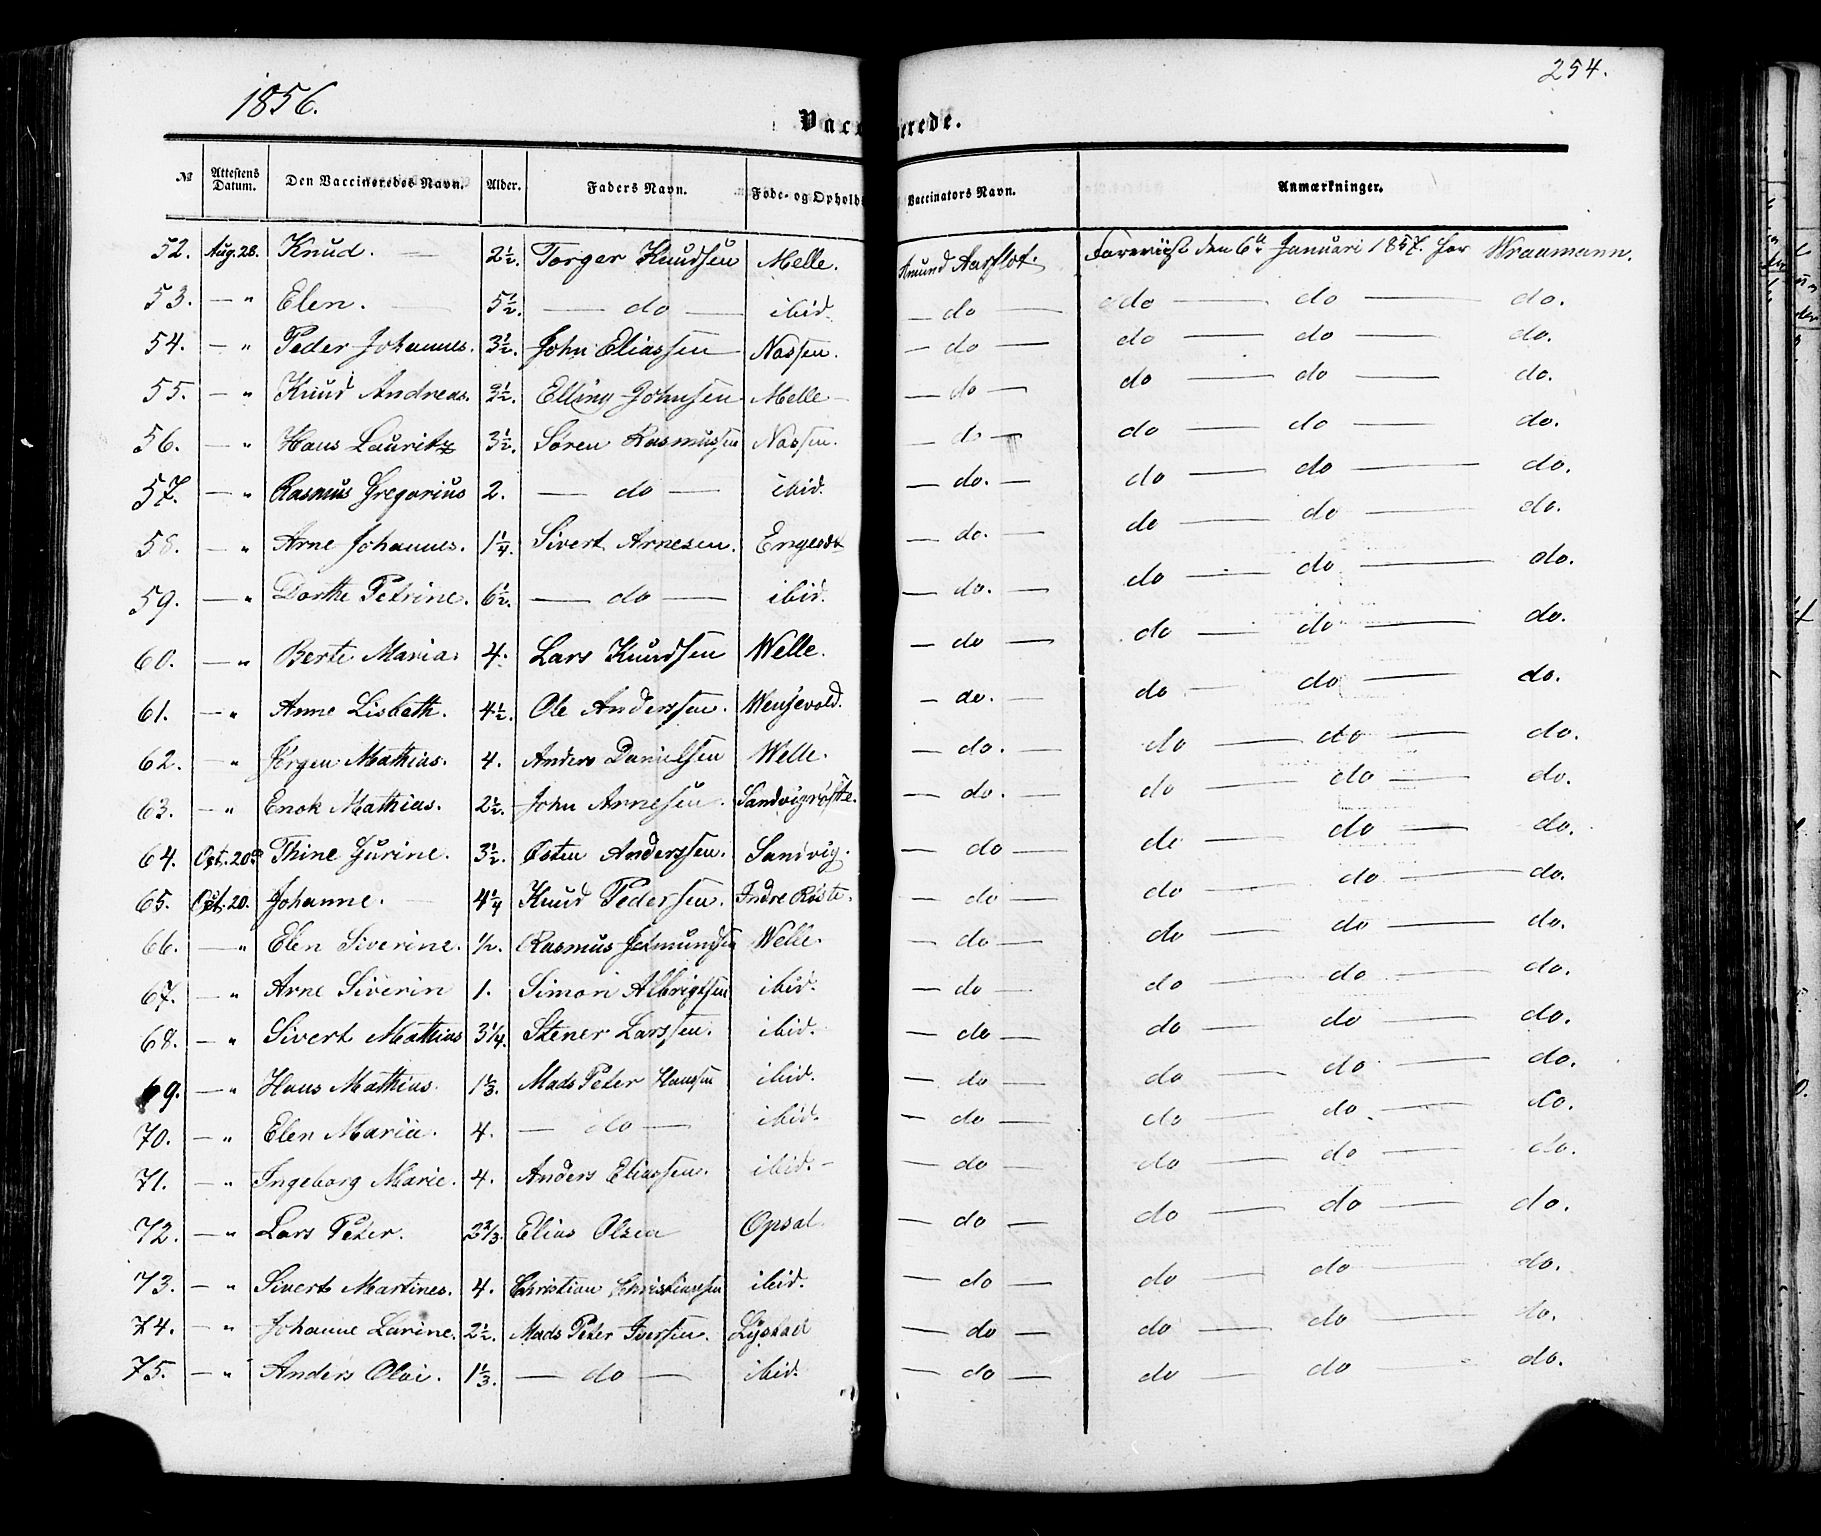 1856.
254.
Vaccinerede.
№ Attestens Datum. Den Vaccineredes Navn. Alder. Faders Navn. Føde- og Opholds Vaccinators Navn. Anmærkninger.
52. Aug. 28. Knud. 2½. Torger Knudsen Melle. Amund Aarflot. Foreviist den 6te Januari 1857. for Wraamann.
53. — " Elen. 5½. — do — ibid. — do — do — do — do.
54. — " Peder Johannes. 3½. John Eliassen Nassen. — do — do — do — do.
55. — " Knud Andreas. 3½. Elling Johnsen Melle — — do — do — do — do.
56. — " Hans Lauritz 3½. Søren Rasmussen Nassen. — do — do — do — do.
57. — " Rasmus Gregorius 2. — do — ibid. — do. — do — do — do.
58. — " Arne Johannes. 1¼. Sivert Arnesen. Engeset — do. — do — do — do.
59. — " Dorthe Petrine. 6½. — do — ibid. — do. — do — do — do.
60. — " Berte Maria. 4. Lars Knudsen Welle. — do — do — do — do.
61. — " Anne Lisbeth. 4½. Ole Anderssen. Wensevold. — do. — do — do — do.
62. — " Jørgen Mathias. 4. Anders Danielsen Welle. — do. — do — do — do.
63. — " Enok Mathias. 2½. John Arnesen. Sandvigrøste. — do. — do — do — do.
64. Oct. 20de Thine Gurine. 3½. Østen Anderssen. Sandvig. — do — do — do — do.
65. Oct. 20. Johanne. 4¼ Knud Pedersen. Indre Røste. — do — do — do — do.
66. — " Elen Siverine. ½. Rasmus Jetmundsen Welle. — do — do — do — do.
67. — " Arne Siverin 1. Simon Albrigtsen ibid. — do — do — do — do.
68. — " Sivert Mathias 3¼. Stener Larssen. ibid. — do — do — do — do.
69. — " Hans Mathias. 1⅓. Mads Peter Hanssen ibid. — do — do — do — do.
70. — " Elen Maria. 4. — do — ibid. — do — do — do. — do.
71. — " Ingeborg Marie. 4. Anders Eliassen. ibid. — — do — do — do — do.
72. — " Lars Peter. 2⅔. Elias Olsen Opsal. — do — do — do — do.
73. — " Sivert Martines. 4. Christian Christianssen ibid. — do — do — do — do.
74. — " Johanne Larine. 2½. Mads Peter Iversen. Lystad — do — do — do — do.
75. — " Anders Olai. 1⅓. — do — ibid. — do — do — do — do.